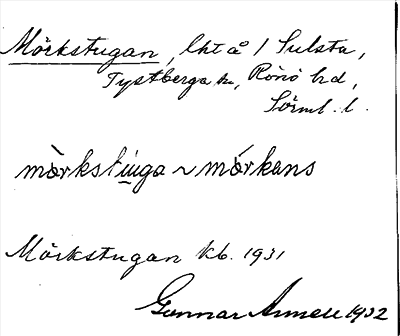 Mörkstugan, lht å 1 Sulsta,
Tystberga sn, Rönö hd,
Sörml. l.
mòrkstùga ~ mórkens
Mörkstugan kb. 1931
Gunnar Annell 1932